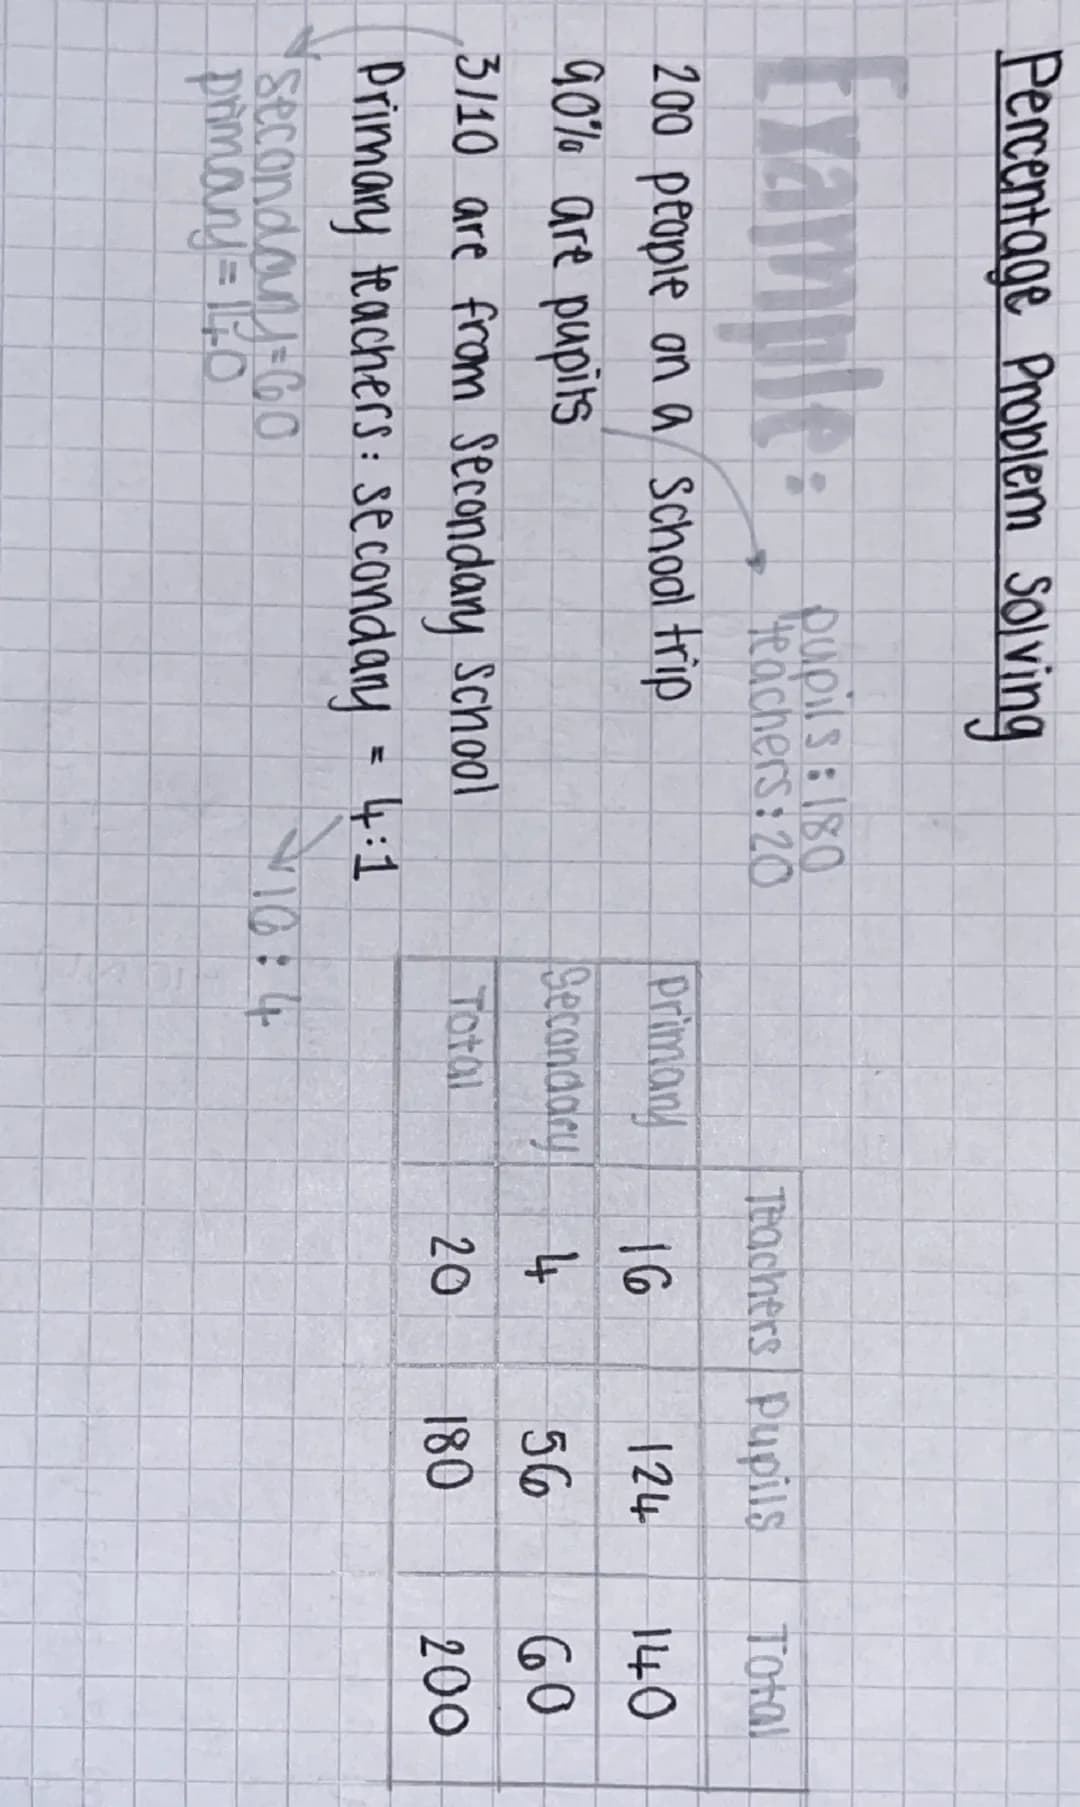 Percentage Problem Solving
Example:
pupils: 180
teachers: 20
200 people on a school trip
90% are pupils
3/10 are from secondary school
Primary teachers: secondary = 4:1
16:4
secondary = 60
primary = 140
Teachers Pupils Total
Primary 16 124 140
Secondary 4 56 60
Total 20 180 200